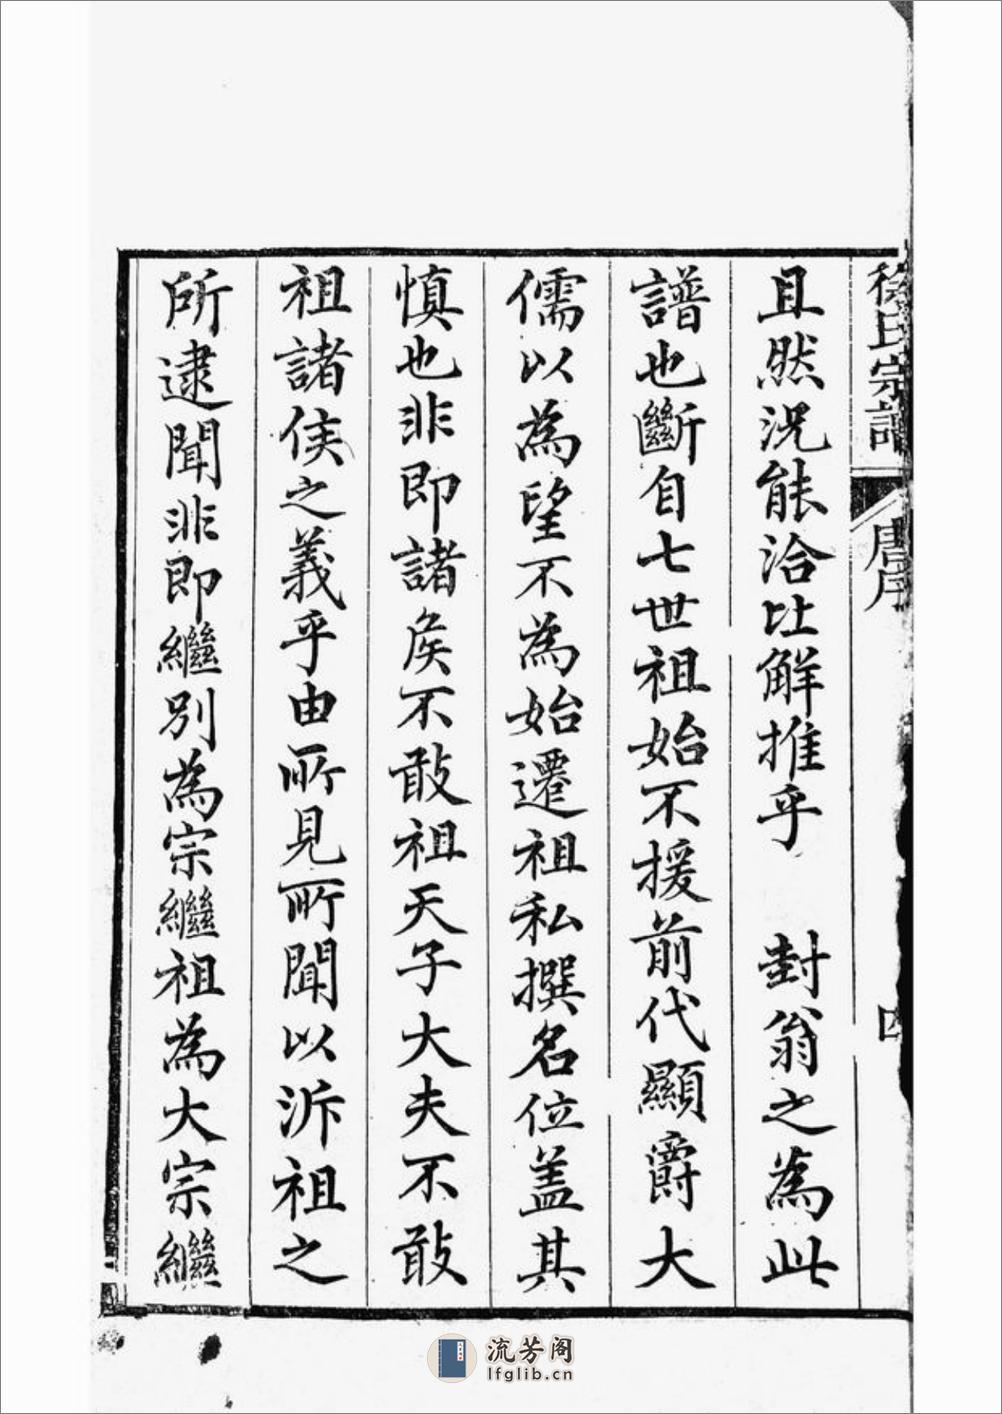 徐氏宗譜
唐序
四
且然況能洽比解推乎　封翁之為此
譜也斷自七世祖始不援前代顯爵大
儒以為望不為始遷祖私撰名位盖其
慎也非即諸矦不敢祖天子大夫不敢
祖諸侯之義乎由所見所聞以泝祖之
所逮聞非即繼別為宗繼祖為大宗繼
流芳阁
lfglib.cn